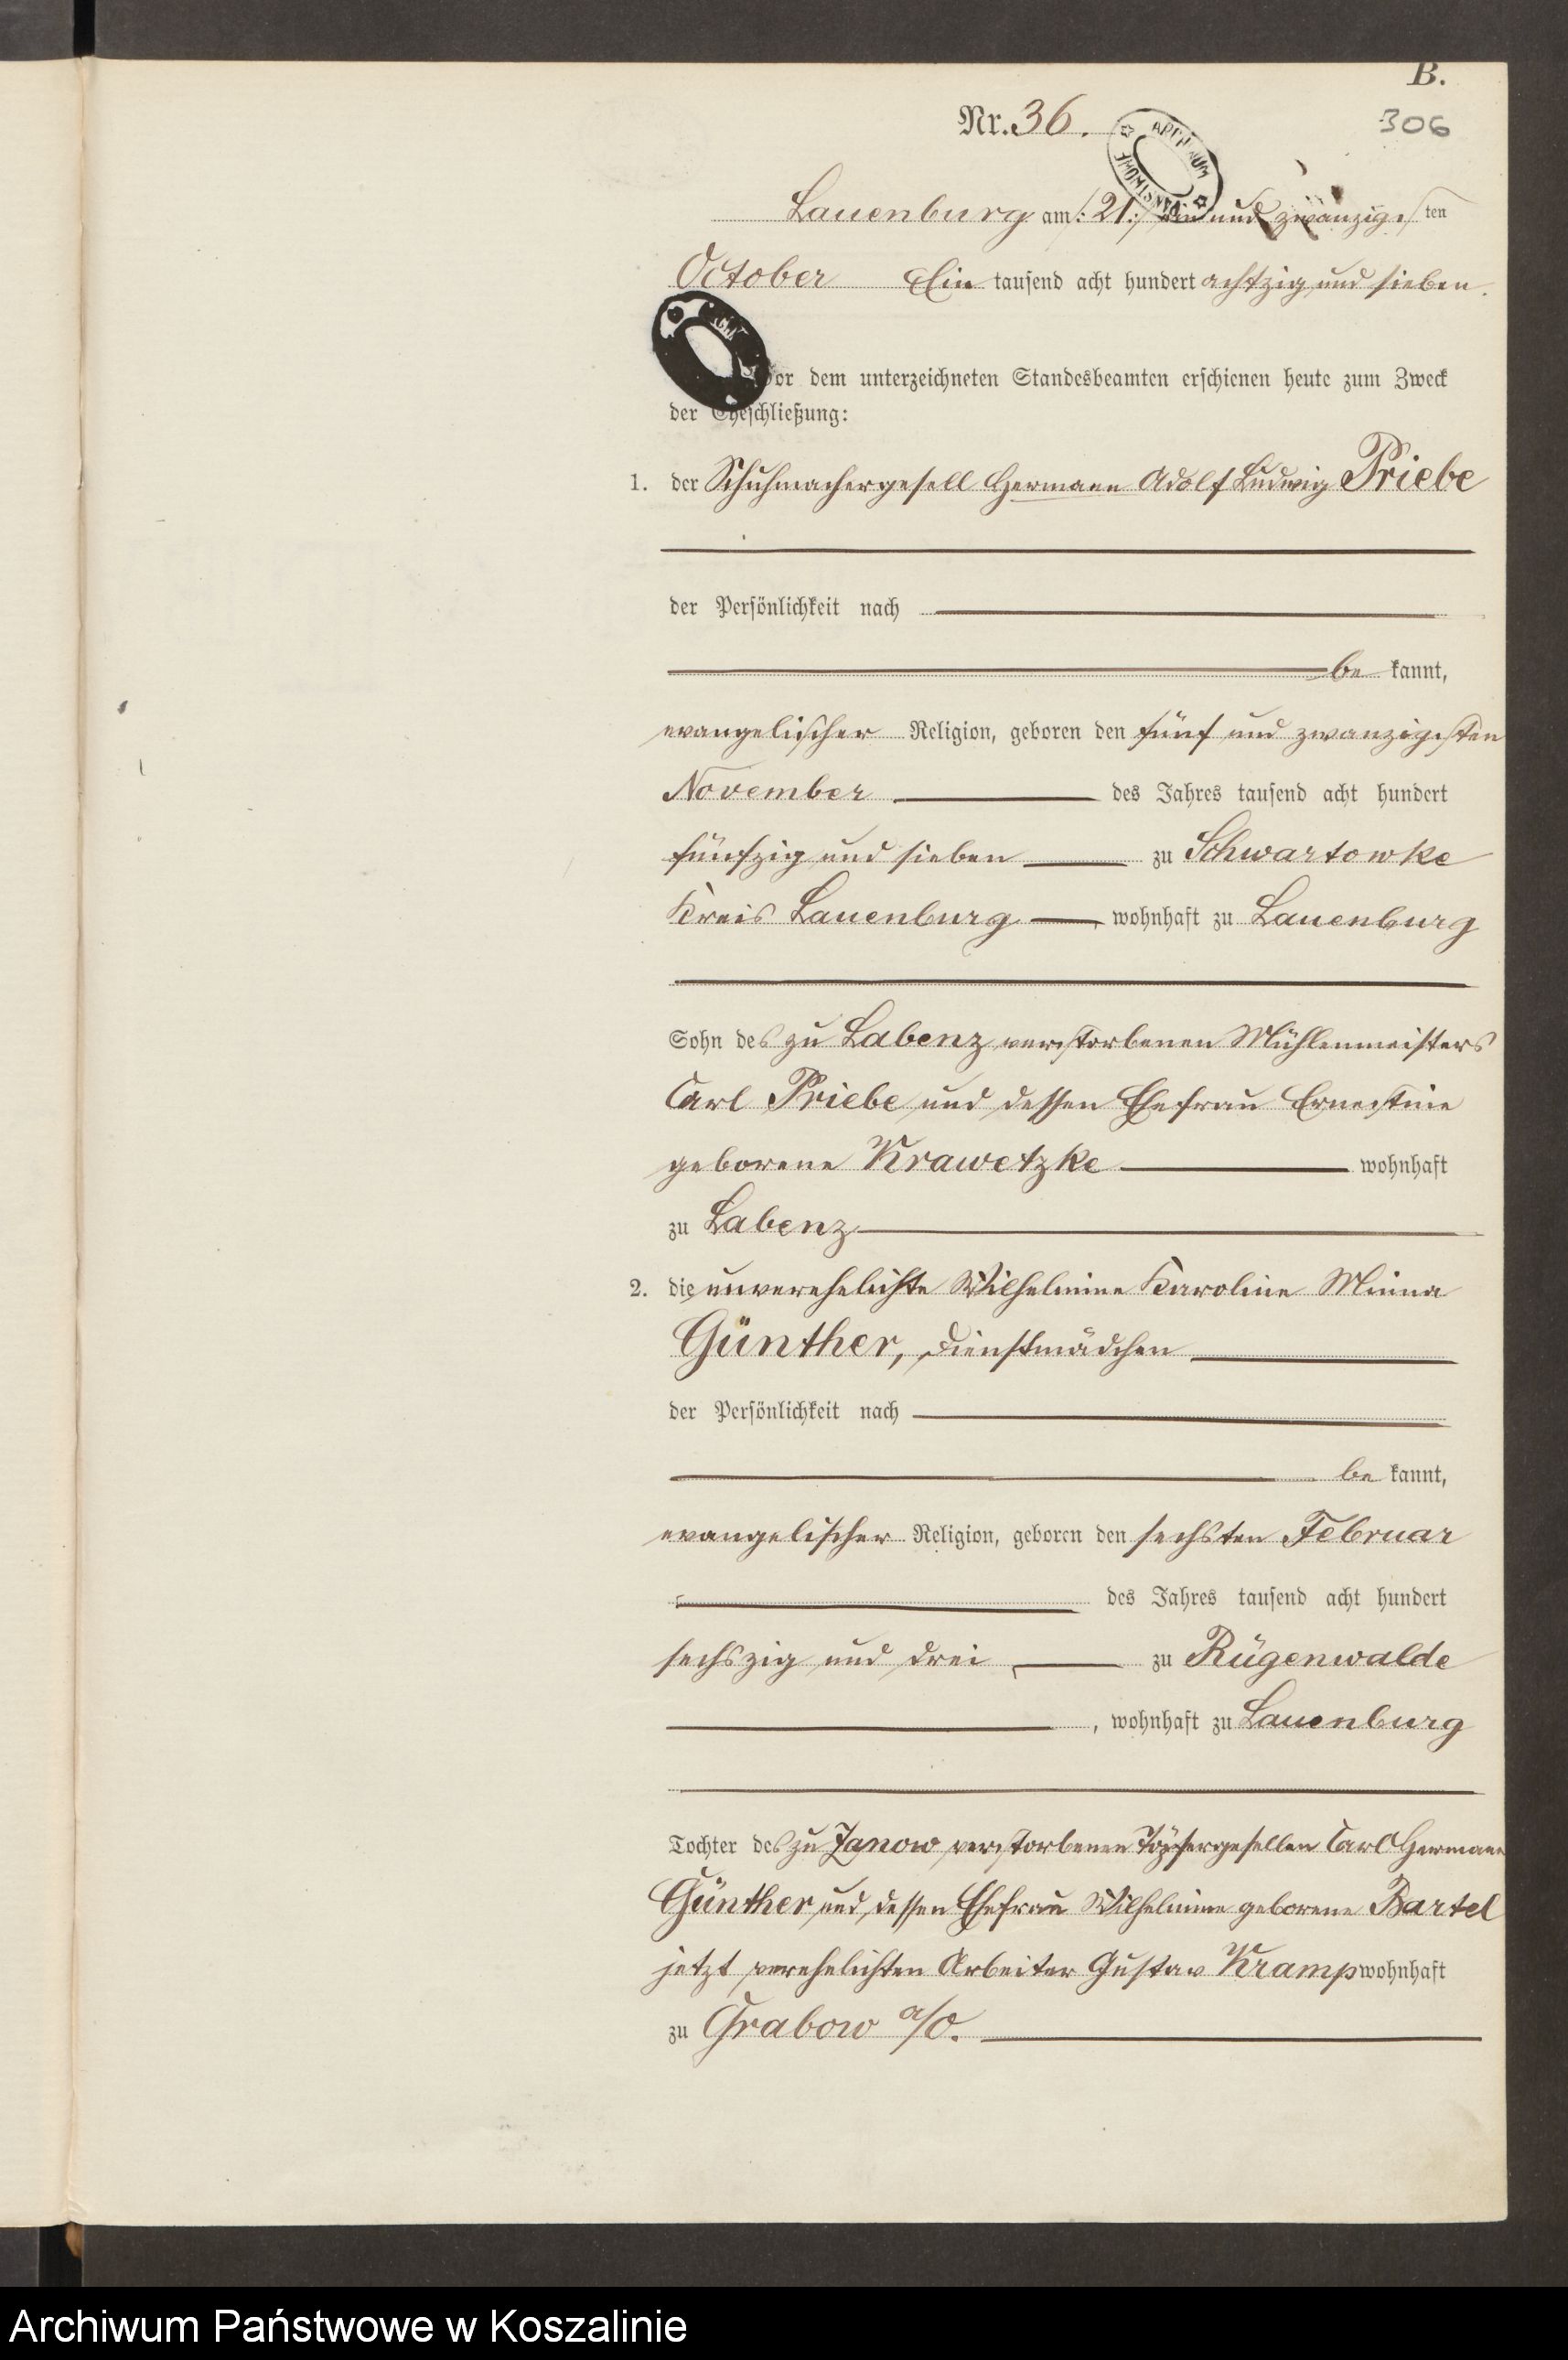 B.
Nr. 36.
306
Lauenburg am /:21:/ ein und zwanzigsten
October Ein tausend acht hundert achtzig und sieben.
Vor dem unterzeichneten Standesbeamten erschienen heute zum Zweck
der Eheschließung:
1. der Schuhmachergesell Hermann Adolf Ludwig Priebe
der Persönlichkeit nach
be kannt,
evangelischer Religion, geboren den fünf und zwanzigsten
November des Jahres tausend acht hundert
fünfzig und sieben zu Schwartowke
Kreis Lauenburg, wohnhaft zu Lauenburg
Sohn des zu Labenz verstorbenen Mühlenmeisters
Carl Priebe und dessen Ehefrau Ernestine
geborene Krawetzke wohnhaft
zu Labenz
2. die unverehelichte Wilhelmine Karoline Minna
Günther, Dienstmädchen
der Persönlichkeit nach
be kannt,
evangelischer Religion, geboren den sechsten Februar
des Jahres tausend acht hundert
sechszig und drei zu Rügenwalde
, wohnhaft zu Lauenburg
Tochter des zu Zanow verstorbenen Töpfergesellen Carl Hermann
Günther und dessen Ehefrau Wilhelmine geborene Bartel
jetzt verehelichten Arbeiter Gustav Kramp wohnhaft
zu Grabow a/O.
Archiwum Państwowe w Koszalinie